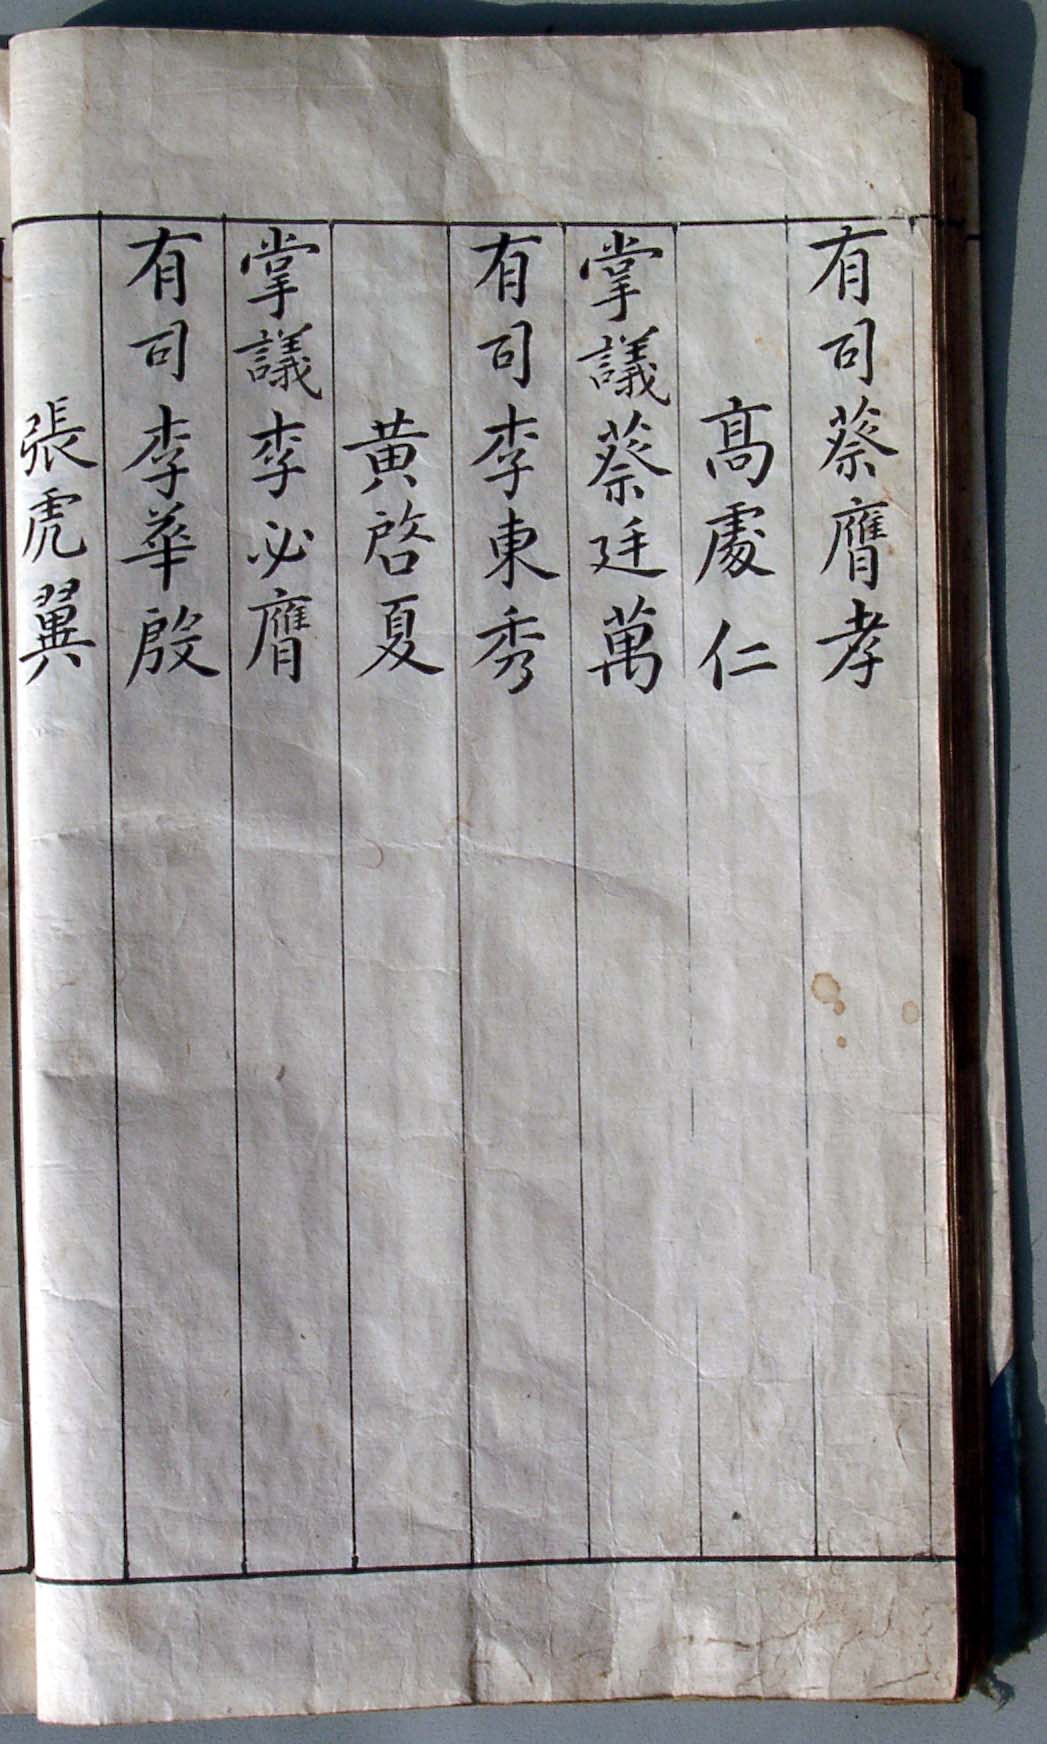 有司蔡膺孝
高處仁
掌議蔡廷萬
有司李東秀
黃啓夏
掌議李必膺
有司李華殷
張虎翼